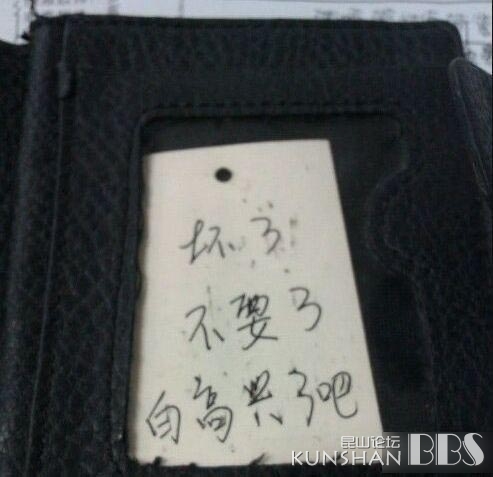 坏了
不要了
白高兴了吧
昆山论坛
KUNSHAN BBS